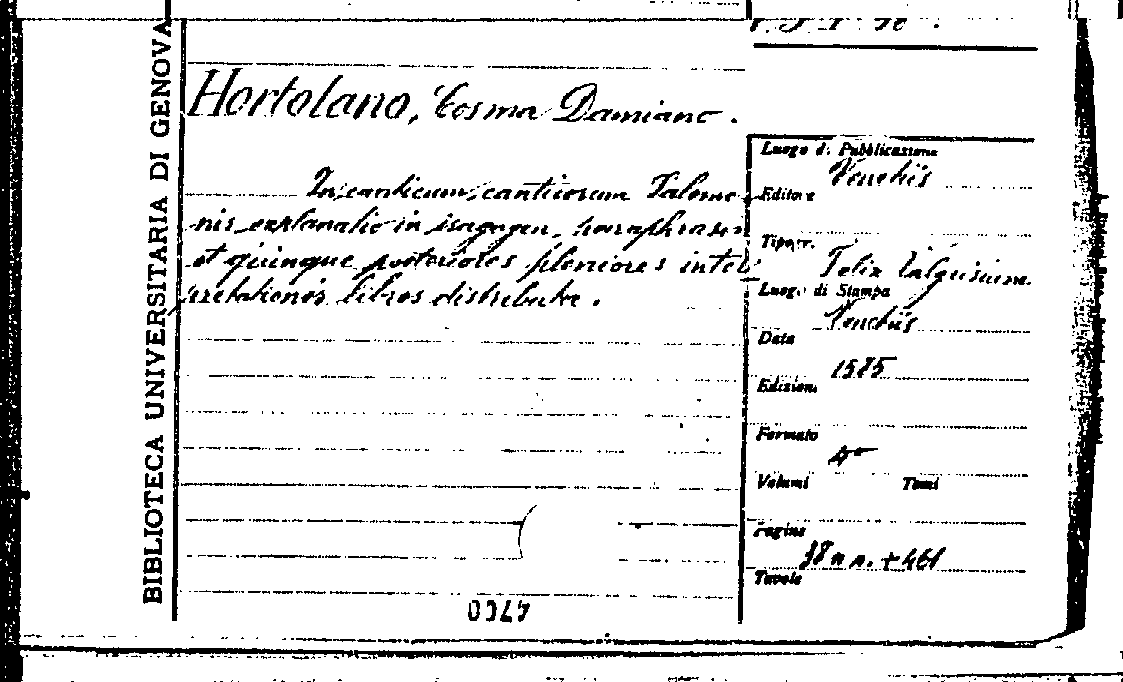 BIBLIOTECA UNIVERSITARIA DI GENOVA
Hortolano, Cosma Damiano.
In canticum canticorum Salomo-
nis explanatio in isagogen, paraphrasin
et quinque posteriores pleniores inter
pretationis libros distributa.
Luogo di Pubblicazione
Venetiis
Editore
Tipogr.
Felix Valgrisium.
Luogo di Stampa
Venetiis
Data
1585
Edizione
Formato
4º
Volumi Tomi
Pagine
38 n n. + 461
Tavole